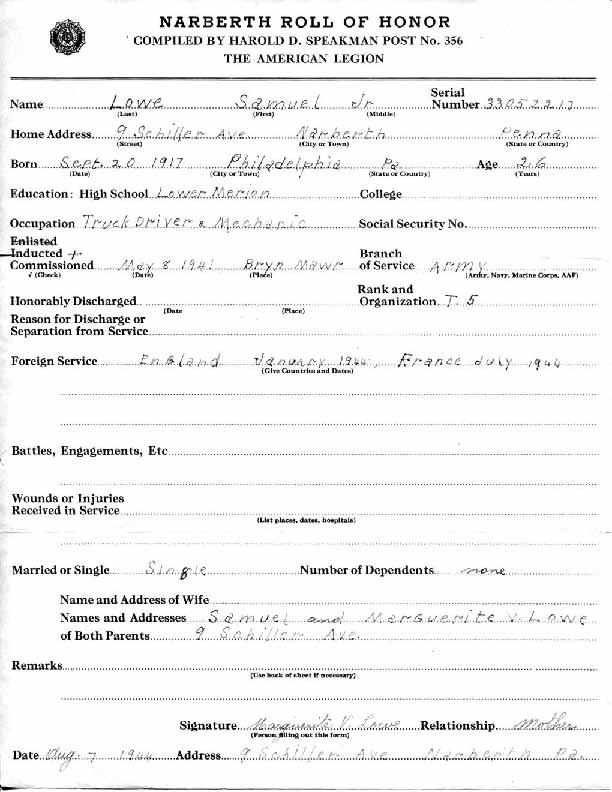 NARBERTH ROLL OF HONOR
COMPILED BY HAROLD D. SPEAKMAN POST No. 356
THE AMERICAN LEGION
Name Lowe Samuel Jr Serial Number 33052217
(Last) (First) (Middle)
Home Address 9 Schiller Ave Narberth Penna
(Street) (City or Town) (State or Country)
Born Sept. 20 1917 Philadelphia Pa. Age 26
(Date) (City or Town) (State or Country) (Years)
Education: High School Lower Merion College
Occupation Truck Driver & Mechanic Social Security No.
Enlisted
Inducted
Commissioned May 8 1941 Bryn Mawr Branch of Service Army
√ (Check) (Date) (Place) (Army, Navy, Marine Corps, AAF)
Honorably Discharged Rank and Organization T. 5
(Date (Place)
Reason for Discharge or
Separation from Service
Foreign Service England January 1944, France July 1944
(Give Countries and Dates)
Battles, Engagements, Etc
Wounds or Injuries
Received in Service
(List places, dates, hospitals)
Married or Single Single Number of Dependents none
Name and Address of Wife
Names and Addresses Samuel and Marguerite V. Lowe
of Both Parents 9 Schiller Ave.
Remarks
(Use back of sheet if necessary)
Signature Marguerite V. Lowe Relationship Mother
(Person filling out this form)
Date Aug. 7 1944 Address 9 Schiller Ave Narberth Pa.